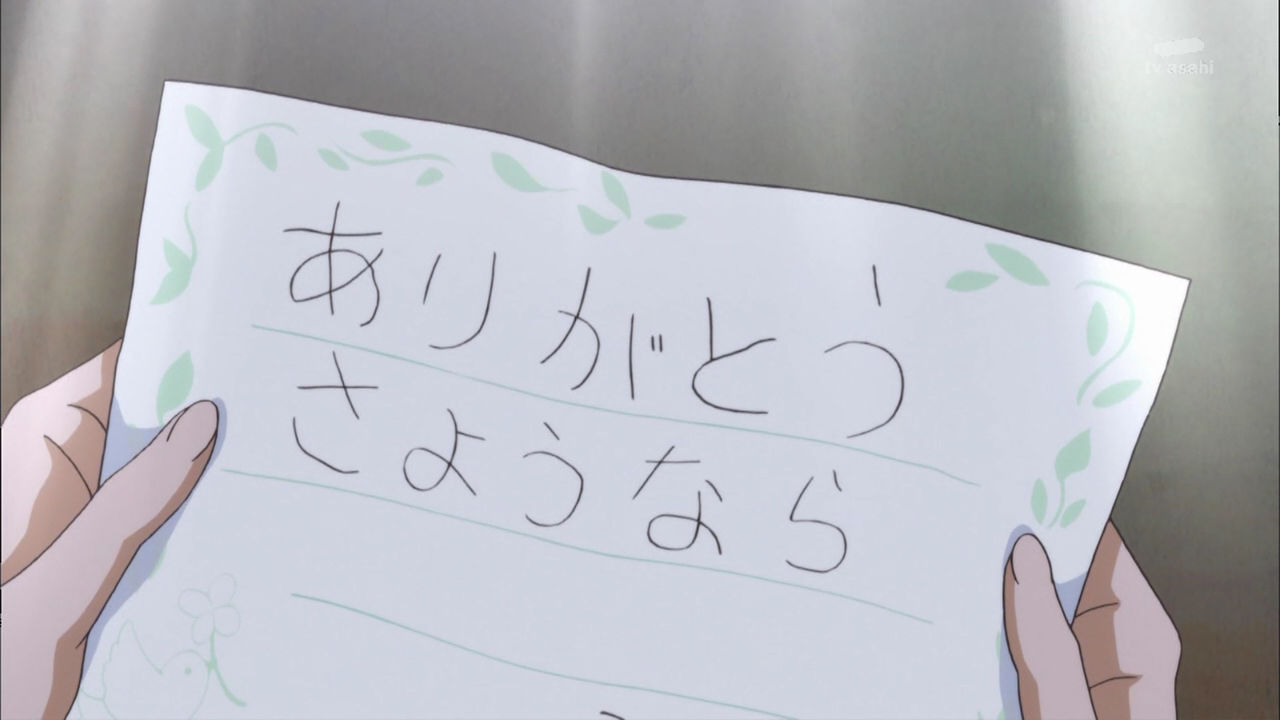 tv asahi
ありがとう
さようなら